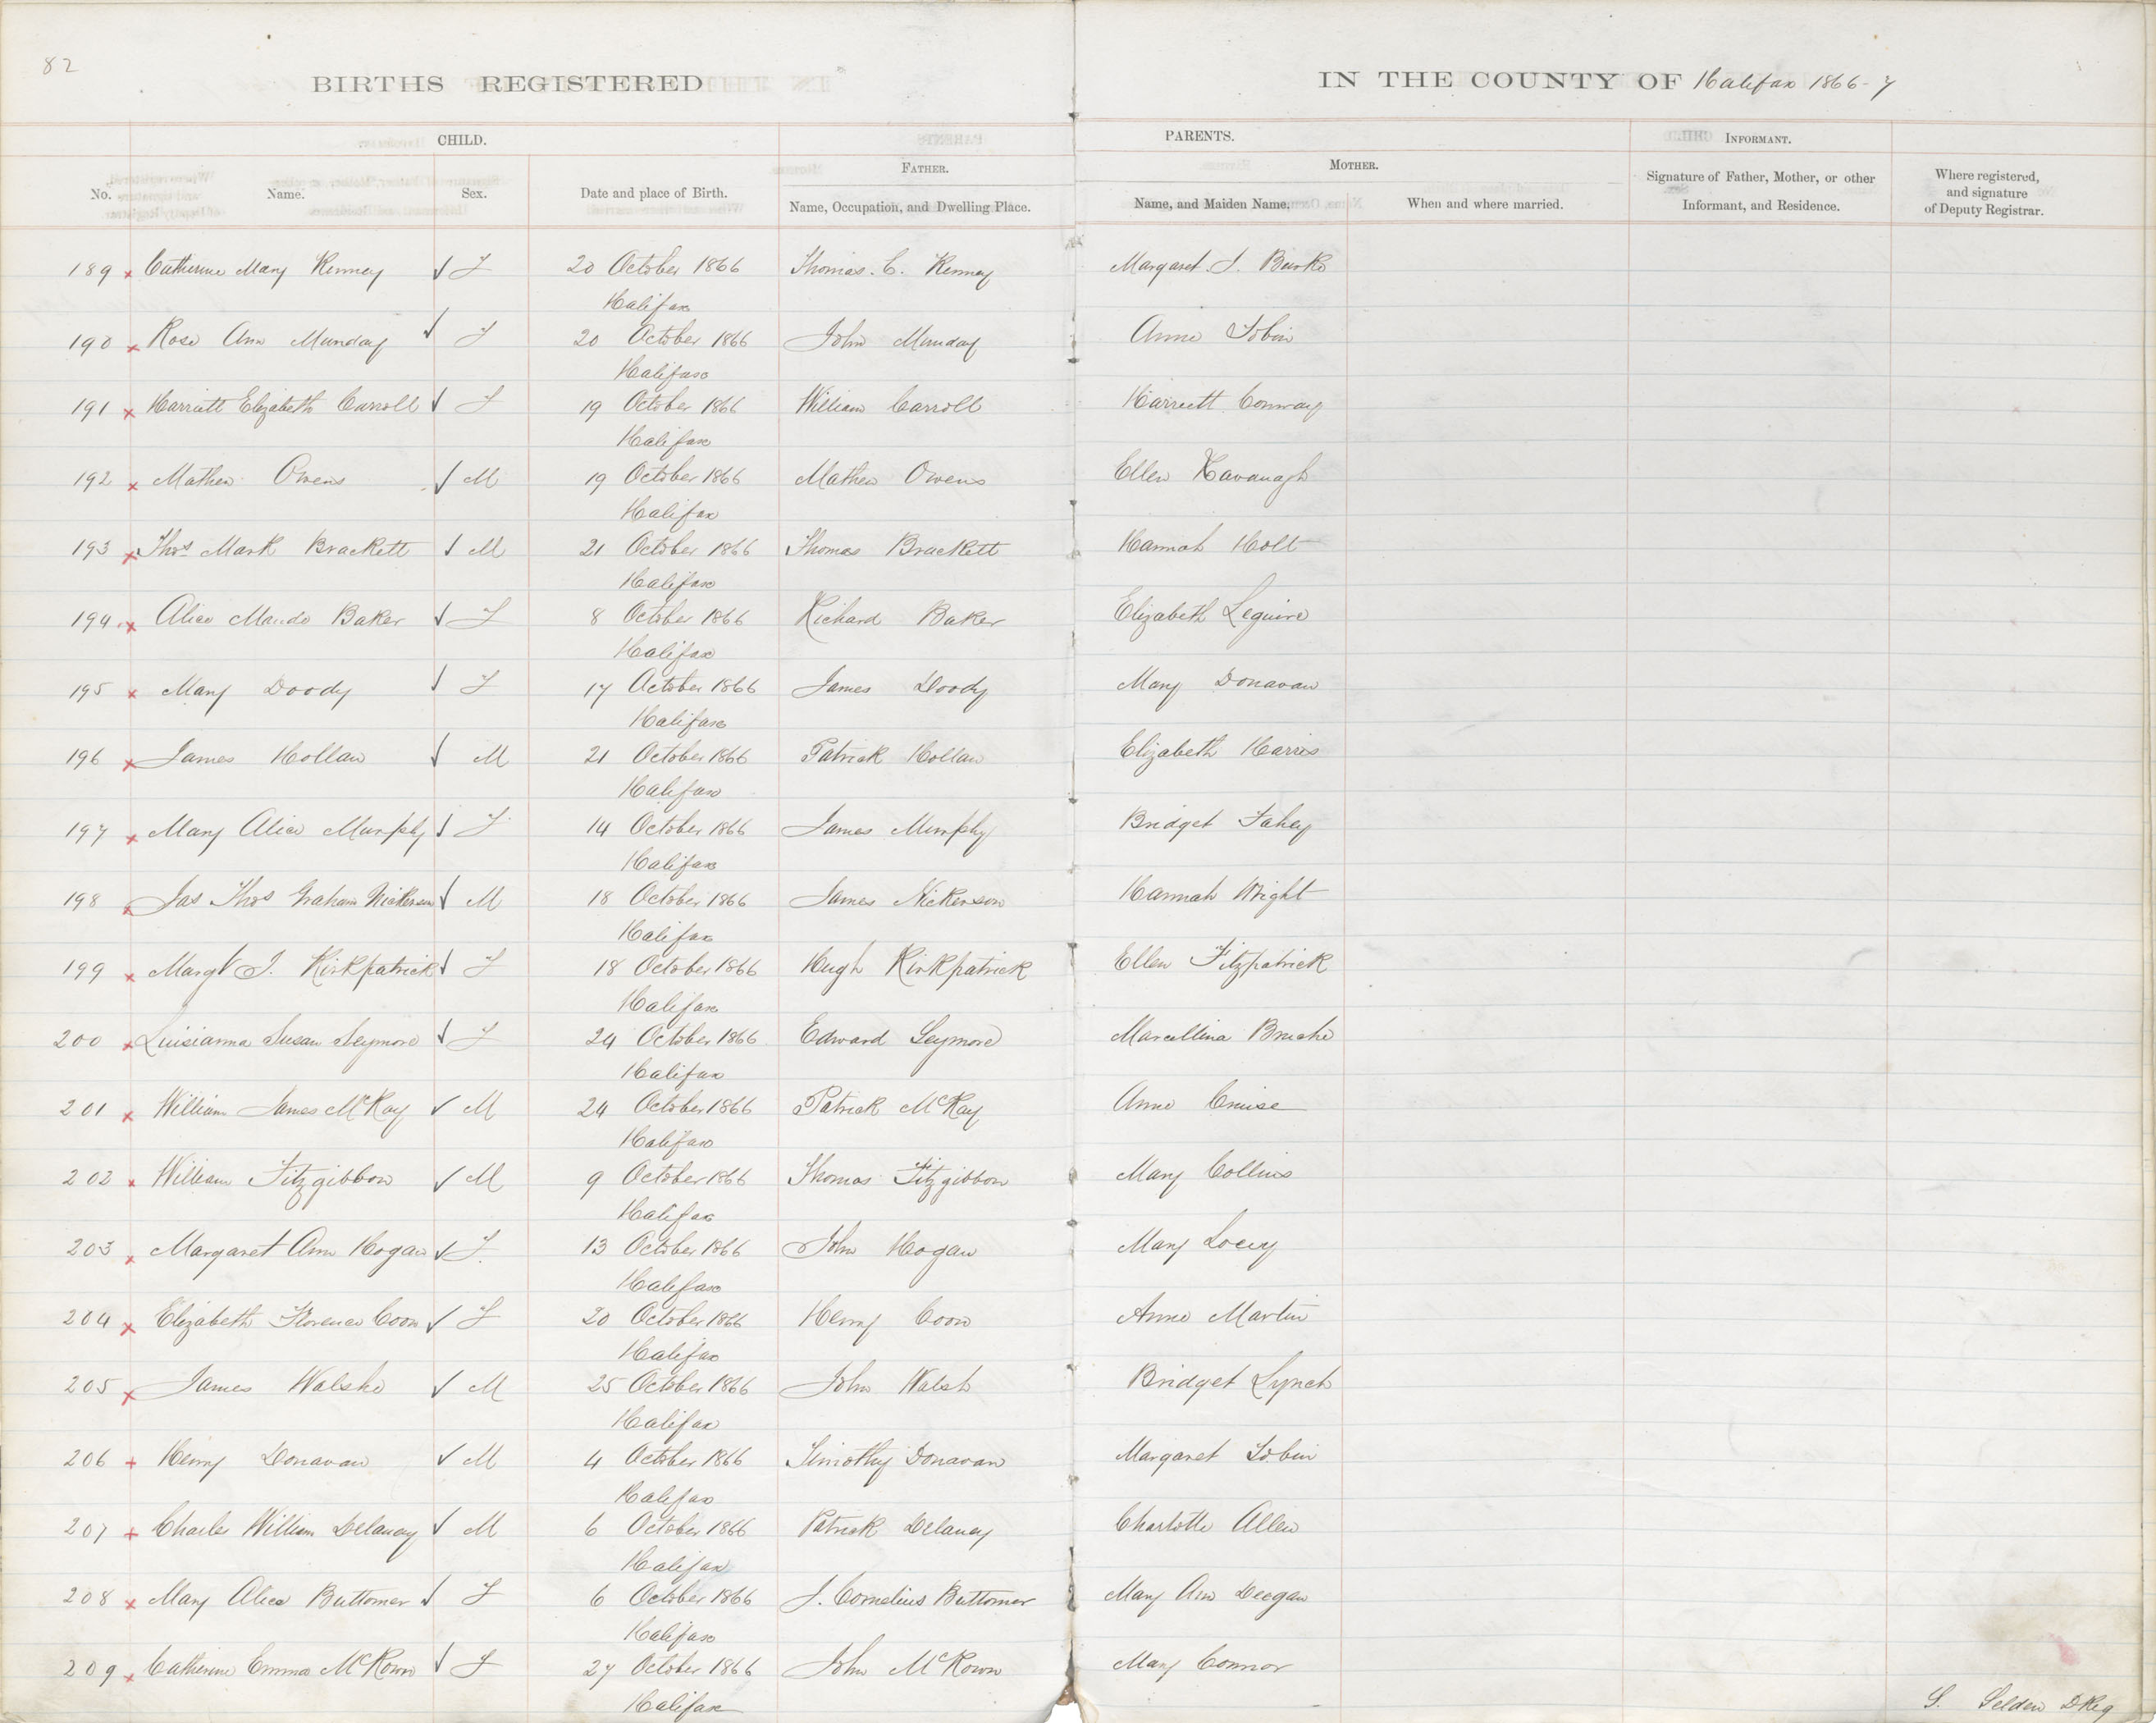 82
BIRTHS REGISTERED IN THE COUNTY OF Halifax 1866-7
CHILD. PARENTS. INFORMANT.
FATHER. MOTHER.
No. Name. Sex. Date and place of Birth. Name, Occupation, and Dwelling Place. Name, and Maiden Name. When and where married. Signature of Father, Mother, or other Informant, and Residence. Where registered, and signature of Deputy Registrar.
189 x Catherine Mary Kenney ✓ F 20 October 1866 Thomas. C. Kenney Margaret. J. Burke
Halifax
190 x Rose Ann Munday ✓ F 20 October 1866 John Munday Anne Tobin
Halifax
191 x Harriett Elizabeth Carroll ✓ F 19 October 1866 William Carroll Harriett Conway
Halifax
192 x Mathew Owens ✓ M 19 October 1866 Mathew Owens Ellen Kavanagh
Halifax
193 x Thos Mark Brackett ✓ M 21 October 1866 Thomas Brackett Hannah Holt
Halifax
194 x Alice Maude Baker ✓ F 8 October 1866 Richard Baker Elizabeth Leguire
Halifax
195 x Mary Doody ✓ F 17 October 1866 James Doody Mary Donavan
Halifax
196 x James Hollan ✓ M 21 October 1866 Patrick Hollan Elizabeth Harris
Halifax
197 x Mary Alice Murphy ✓ F 14 October 1866 James Murphy Bridget Fahey
Halifax
198 x Jas Thos Graham Nickerson ✓ M 18 October 1866 James Nickerson Hannah Wright
Halifax
199 x Margt J. Kirkpatrick ✓ F 18 October 1866 Hugh Kirkpatrick Ellen Fitzpatrick
Halifax
200 x Luisianna Susan Seymore ✓ F 24 October 1866 Edward Seymore Marcellina
Halifax
201 x William James McKay ✓ M 24 October 1866 Patrick McKay Anne Cruise
Halifax
202 x William Fitzgibbon ✓ M 9 October 1866 Thomas Fitzgibbon Mary Collins
Halifax
203 x Margaret Ann Hogan ✓ F. 13 October 1866 John Hogan Mary
Halifax
204 x Elizabeth Florence Coon ✓ F 20 October 1866 Henry Coon Anne Martin
Halifax
205 x James Walshe ✓ M 25 October 1866 John Walsh Bridget Lynch
Halifax
206 x Henry Donavan ✓ M 4 October 1866 Timothy Donavan Margaret Tobin
Halifax
207 x Charles William Delaney ✓ M 6 October 1866 Patrick Delaney Charlotte Allen
Halifax
208 x Mary Alice Buttomer ✓ F 6 October 1866 J. Cornelius Buttomer Mary Ann Deegan
Halifax
209 x Catherine Emma McKown ✓ F 27 October 1866 John McKown Mary Connor
Halifax
S. Selden DReg